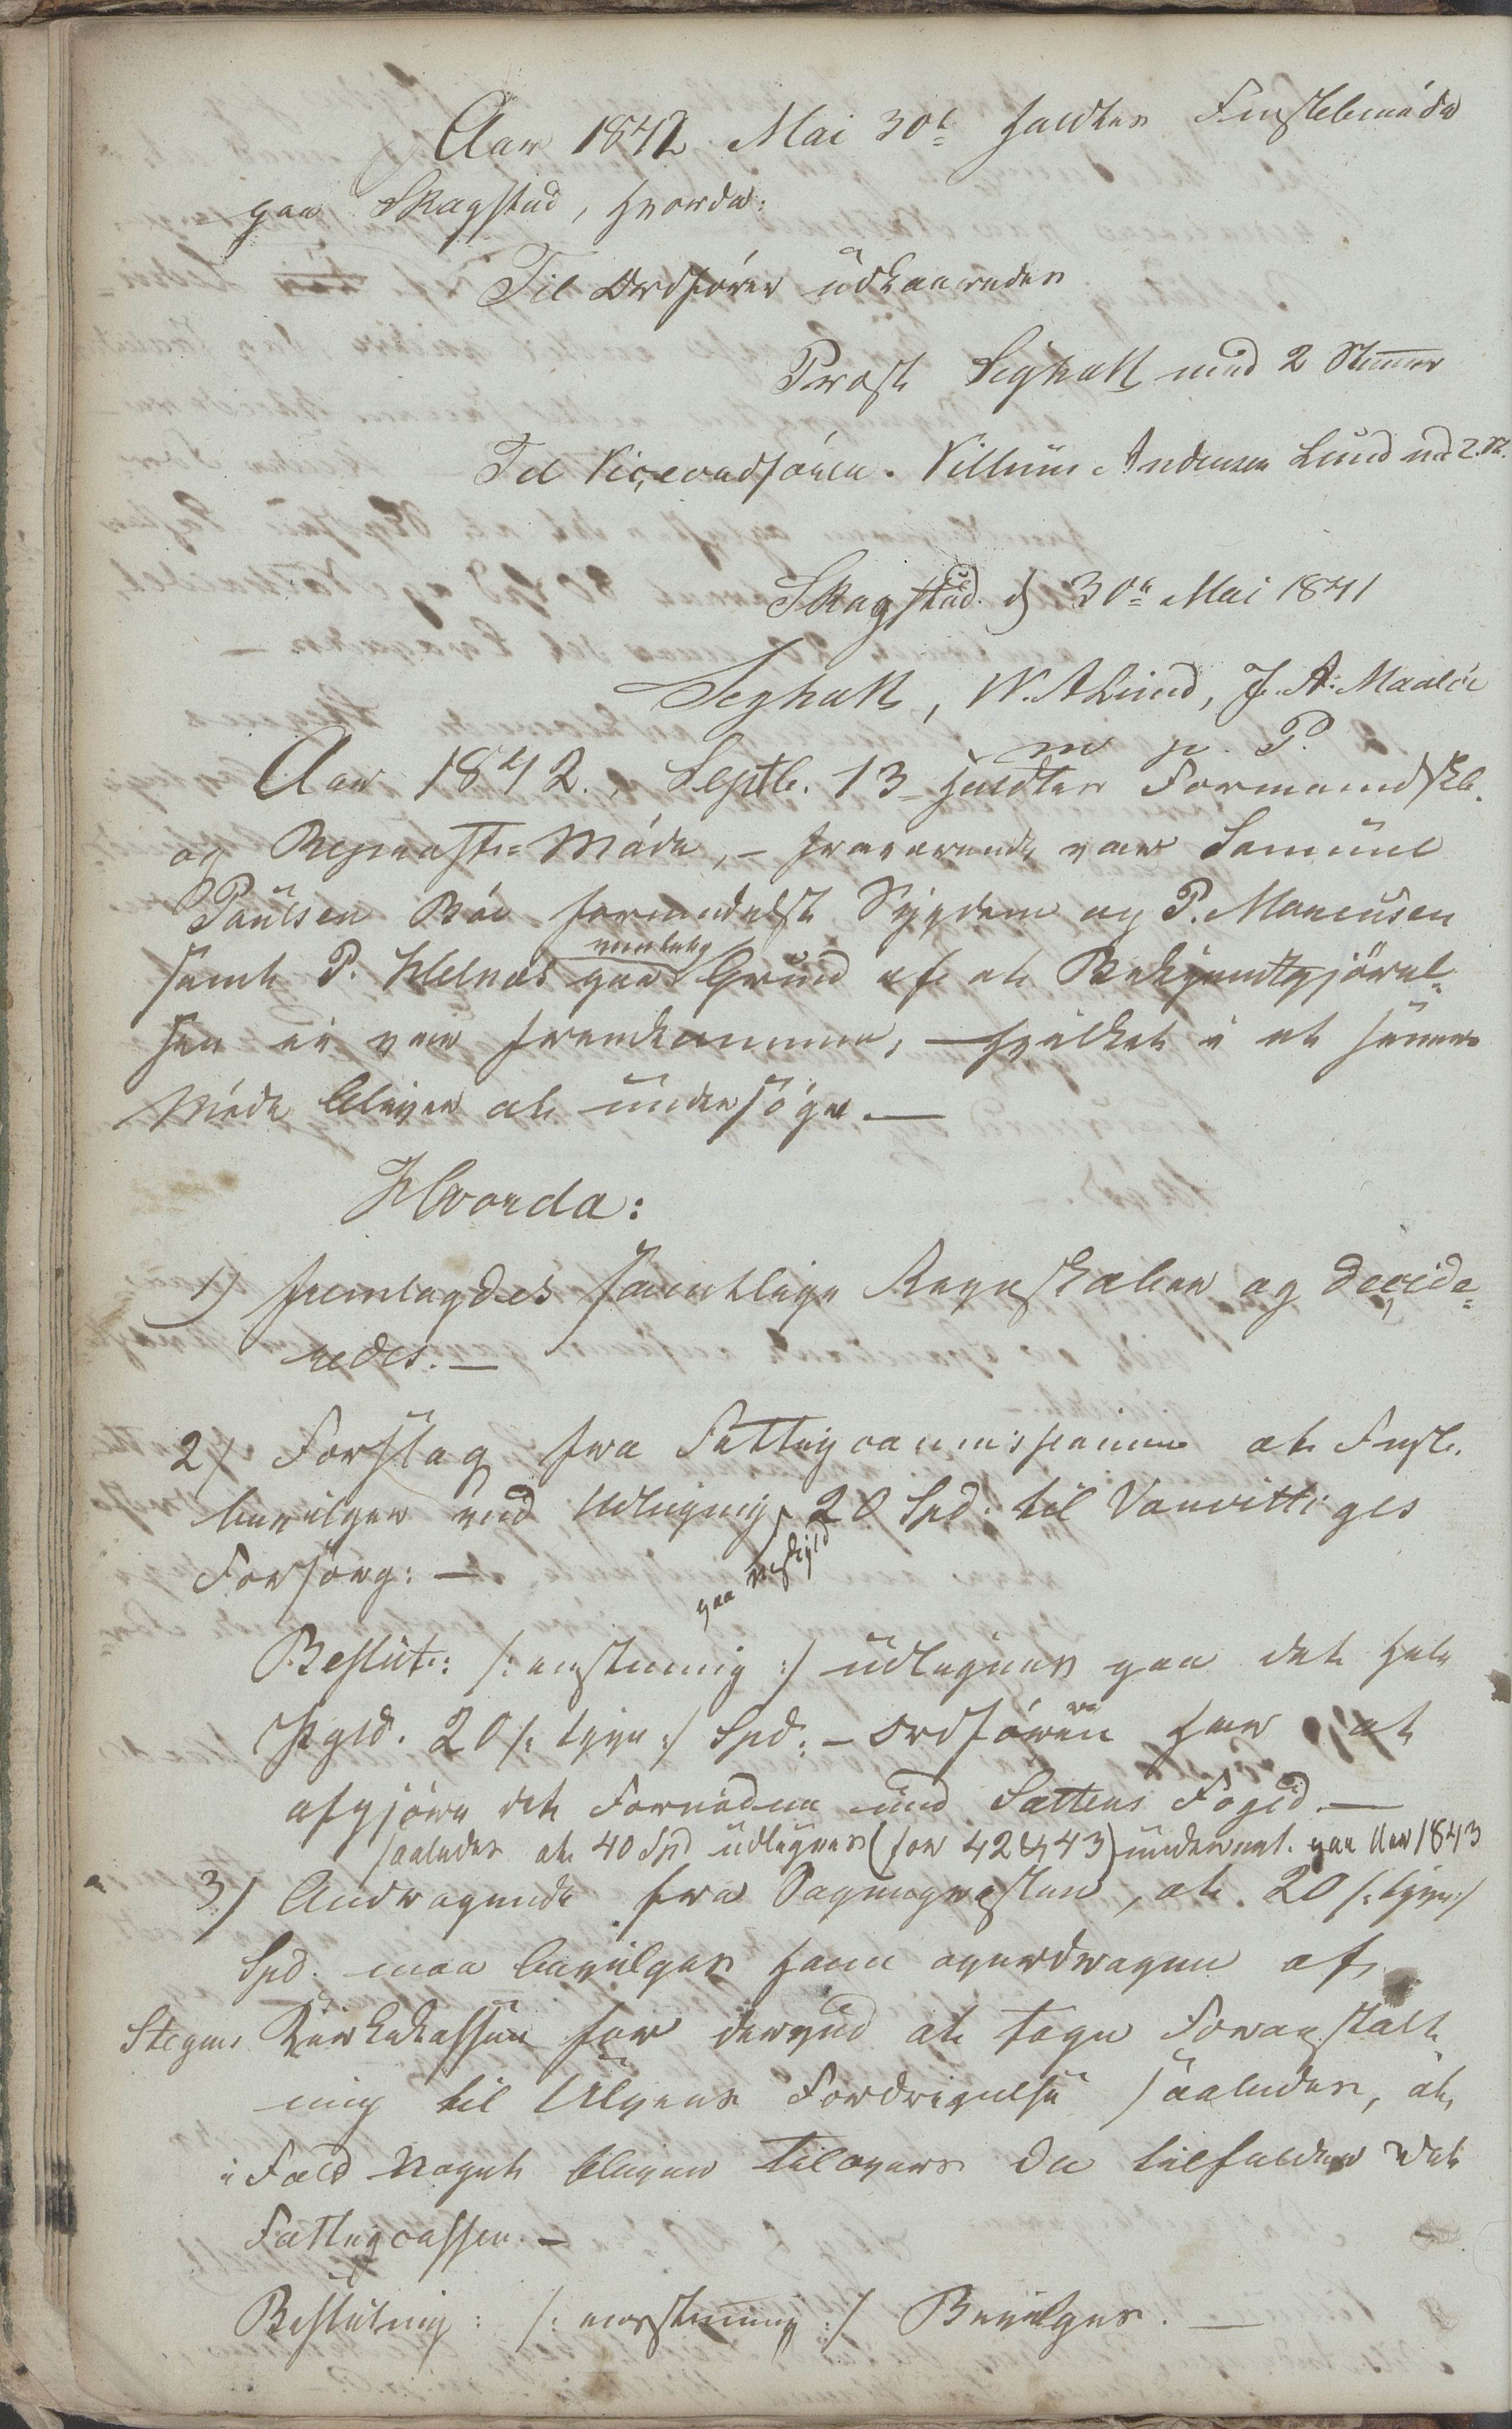 Aar 1842 Mai 30t holdtes Fmskbsmöde
paa Skagstad, hvorda:
Til Ordförer udkaaredes
Provst med 2 Stemmer
Til Viceordförer. Villum Andersen Lund md 2. St.
Skagstad d 30te Mai 1841
W. A Lund, J. A. Maalöe
m p. P.
Aar 1842., Septb. 13 holdtes Formandskb.
og Repræst= Möde, – fraværende var Samuel
Paulsen Böe formedelst Sygdom og P. Marcusen
samt P. Helnæs paa Grund af at Bekjendtgjörel=
sen ei var fremkommen, – hvilket i et senere
Möde bliver at undersöge. –
Hvorda:
1) fremlagdes samtlige Regnskaber og decide=
redes. –
2) Forslag fra Fattigcommissionen at Fmsk.
bevilger ved Udligning 20 Spd. til Vanvittiges
Forsörg: –
paa
Beslut: /: enstemmig :/ udlignes paa det hele
Pgld. 20 /: tyve :/ Spd. – Ordföreren har at
afgjöre det Fornödne med Sættens Foged. –
saaledes at 40 Spd udlignes (for 42 & 43) paa Aar 1843
3) Andragende fra Sognepræsten, at 20 /: tyve :/
Spd. maa bevilges ham overdragen af
Stegens Kirkekassen for derved at föge Foranstalt
ning til Ulvens Fordrivelse saaledes, at,
i Fald Noget bliver tilovers da tilfalder det
Fattigcassen. –
Beslutning: /: enstemmig :/ Bevilges. –